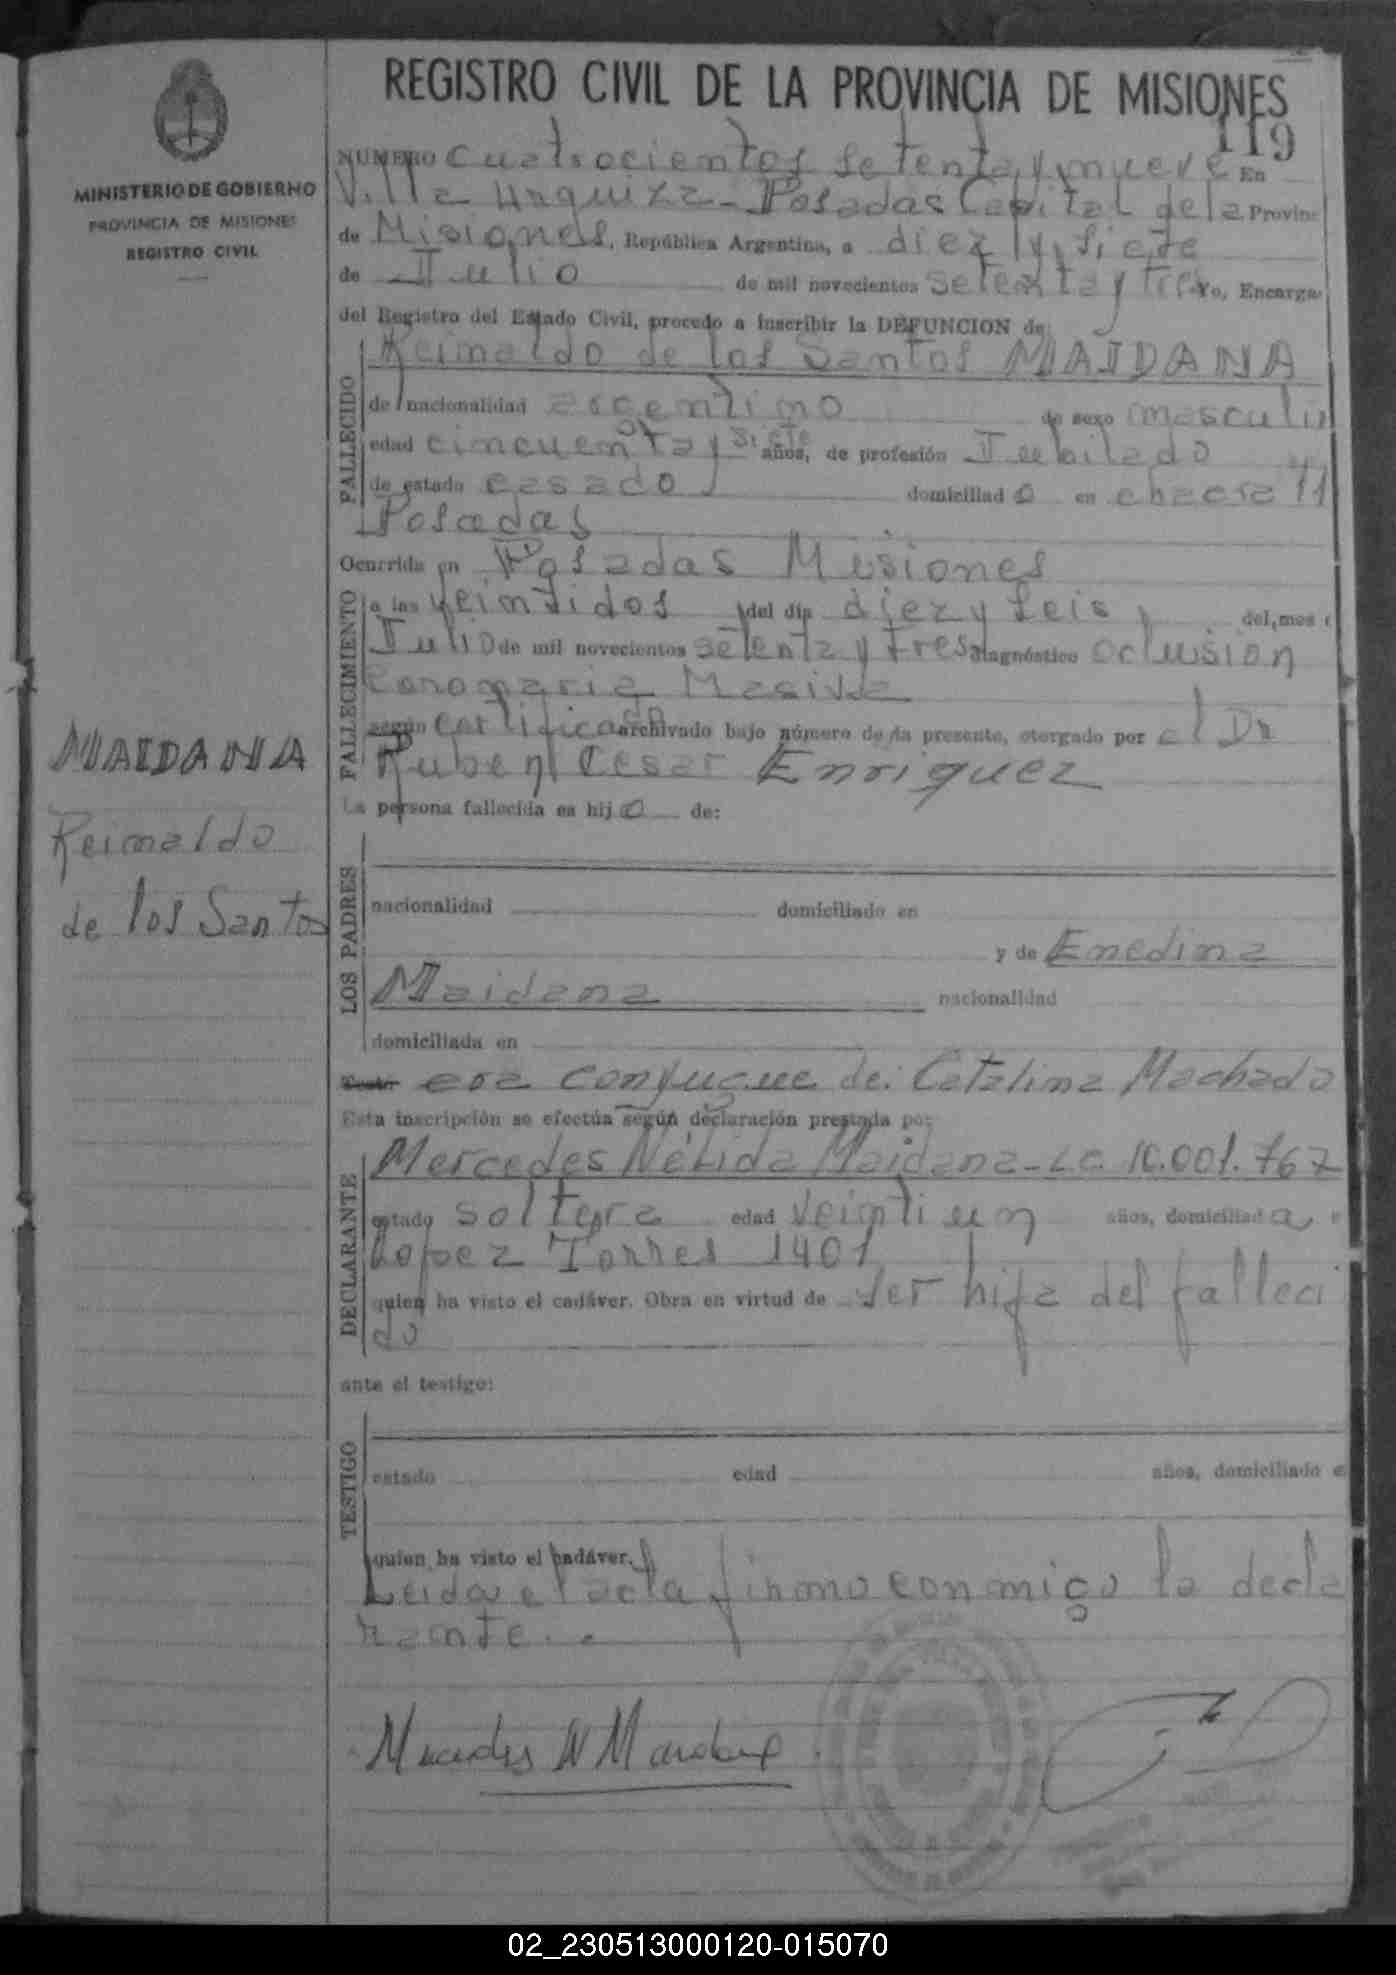 REGISTRO CIVIL DE LA PROVINCIA DE MISIONES
119
MINISTERIO DE GOBIERNO
PROVINCIA DE MISIONES
REGISTRO CIVIL
NUMERO Cuatrocientos setenta y nueve En
Villa Urquiza - Posadas Capital de la Provinc
de Misiones, República Argentina, a diez y siete
de Julio de mil novecientos setenta y tres Yo, Encarga
del Registro del Estado Civil, procedo a inscribir la DEFUNCION de
Reimaldo de los Santos MAIDANA
FALLECIDO
de nacionalidad argentino de sexo masculin
edad cincuenta y siete años, de profesión Jubilado
de estado casado domiciliad o en chacra 71
Posadas
Ocurrida en Posadas Misiones
FALLECIMIENTO
a las veintidos del día diez y seis del mes
Julio de mil novecientos setenta y tres diagnóstico oclusion
Coronaria Masiva
según certificado archivado bajo número de la presente, otorgado por el Dr
Ruben Cesar Enriquez
La persona fallecida es hij o de:
MAIDANA
Reimaldo
de los Santos
LOS PADRES
nacionalidad domiciliado en
y de Enedina
Maidana nacionalidad
domiciliada en
era conyugue de: Catalina Machado
Esta inscripción se efectúa según declaración prestada por:
DECLARANTE
Mercedes Nélida Maidana - L.C. 10.001.767
estado soltera edad veintiun años, domiciliad a e
Lopez Torres 1401
quien ha visto el cadáver. Obra en virtud de ser hija del falleci
do
ante el testigo:
TESTIGO
estado edad años, domiciliado e
quien ha visto el cadáver.
Leida el acta firmo conmigo la decla
rante.
Mercedes N Maidana
02_230513000120-015070